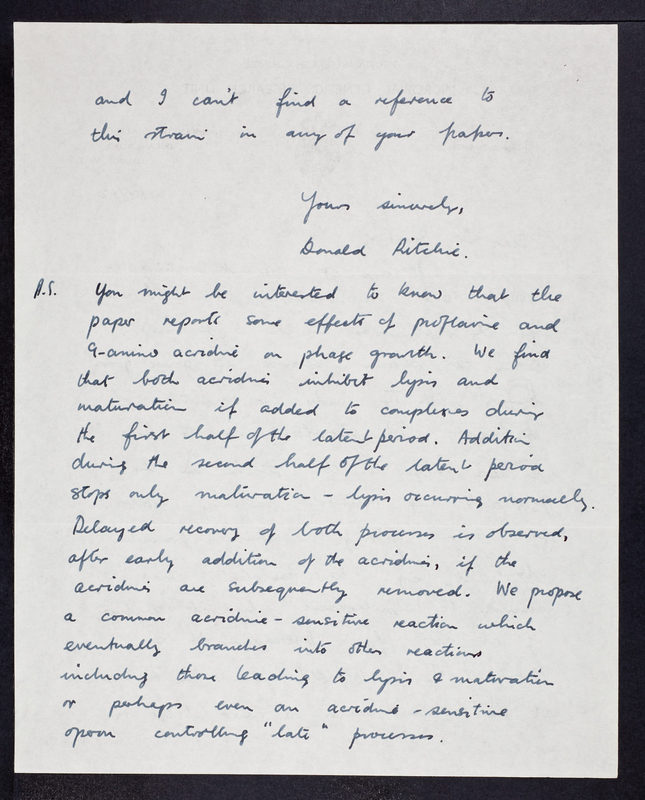 and I can't find a reference to
this strain in any of your papers.
Yours sincerely,
Donald Ritchie.
P.S. You might be interested to know that the
paper reports some effects of proflavine and
9-amino acridine on phage growth. We find
that both acridines inhibit lysis and
maturation if added to complexes during
the first half of the latent period. Addition
during the second half of the latent period
stops only maturation - lysis occurring normally.
Delayed recovery of both processes is observed,
after early addition of the acridines, if the
acridines are subsequently removed. We propose
a common acridine-sensitive reaction which
eventually branches into other reactions
including those leading to lysis & maturation
or perhaps even an acridine-sensitive
operon controlling "late" processes.